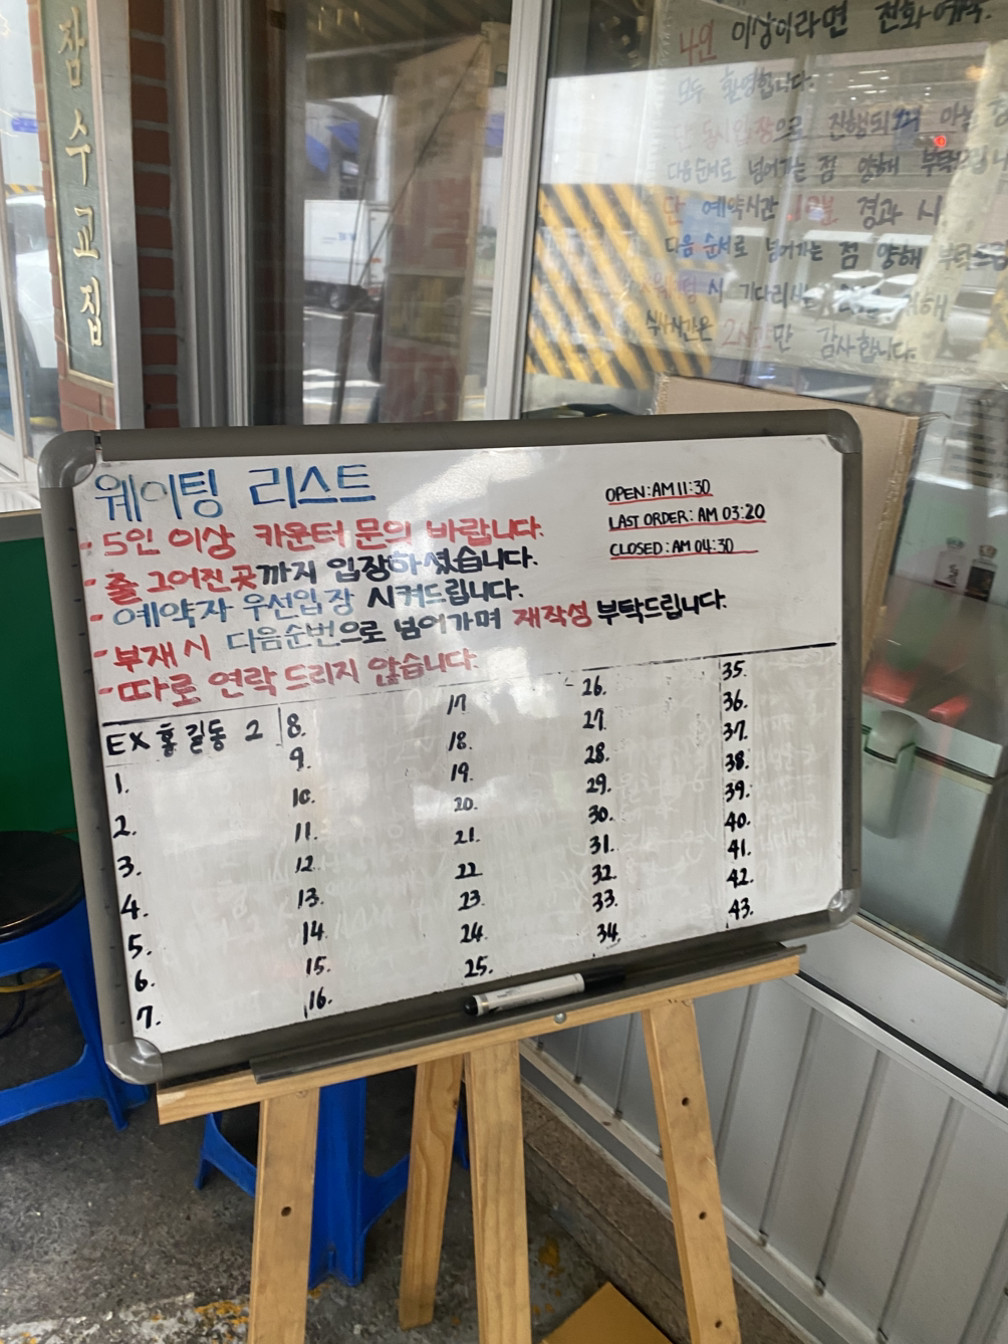 잠수교집
4인 이상이라면 전화예약.
모두 환영합니다.
동시입장으로 진행되며
다음순서로 넘어가는 점 양해 부탁드립니다
단 예약시간 경과 시
다음 순서로 넘어가는 점 양해 부탁드립
시
식사시간은 2시간만 감사합니다.
웨이팅 리스트
- 5인 이상 카운터 문의 바랍니다.
- 줄 그어진 곳까지 입장하셨습니다.
- 예약자 우선입장 시켜드립니다.
- 부재 시 다음순번으로 넘어가며 재작성 부탁드립니다.
- 따로 연락 드리지 않습니다.
OPEN: AM 11:30
LAST ORDER: AM 03:20
CLOSED: AM 04:30
EX 홍길동 2
1.
2.
3.
4.
5.
6.
7.
8.
9.
10.
11.
12.
13.
14.
15.
16.
17.
18.
19.
20.
21.
22.
23.
24.
25.
26.
27.
28.
29.
30.
31.
32.
33.
34.
35.
36.
37.
38.
39.
40.
41.
42.
43.